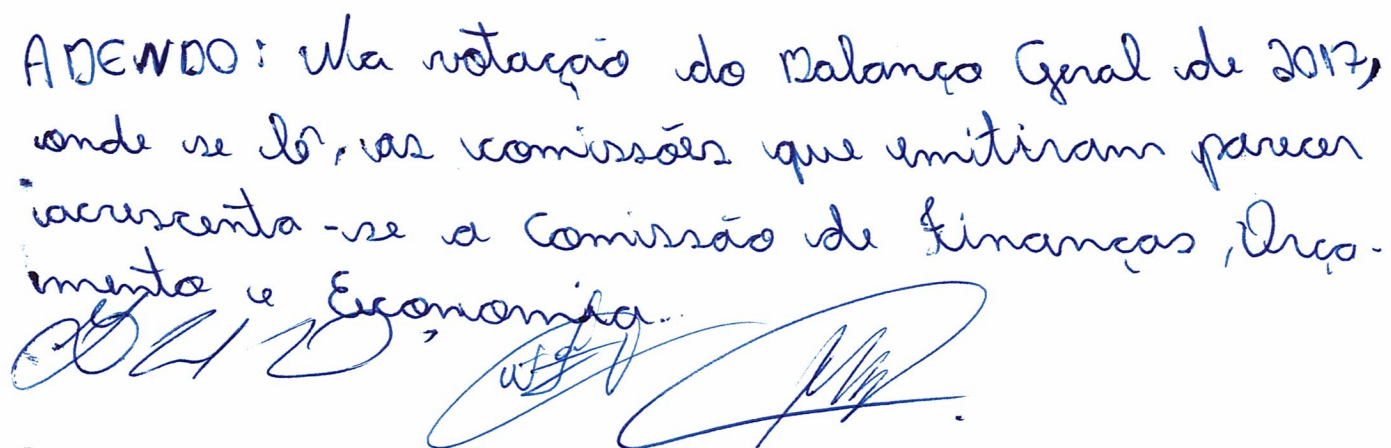 ADENDO: Na votação do Balanço Geral de 2017,
onde se lê, as comissões que emitiram parecer
acrescenta-se a Comissão de Finanças, Orça-
mento e Economia.